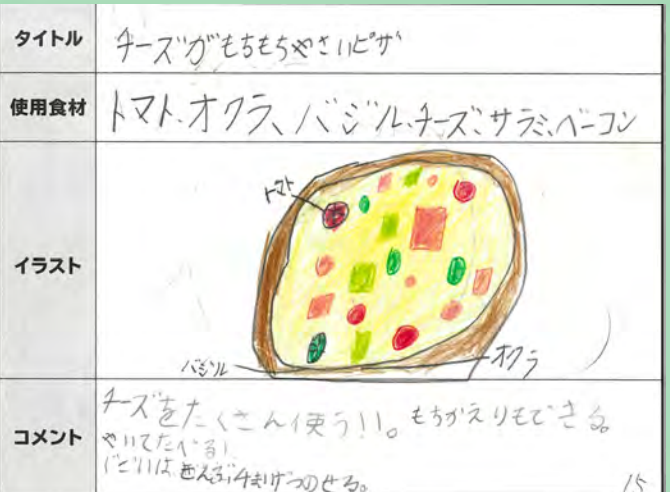 タイトル
チーズがもちもちやさいピザ
使用食材
トマト、オクラ、バジル、チーズ、サラミ、ベーコン
イラスト
トマト
バジル
オクラ
コメント
チーズをたくさん使う!!。もちかえりもできる。
やいてたべる!
バジルはぜんぶ4まいずつのせる。
15